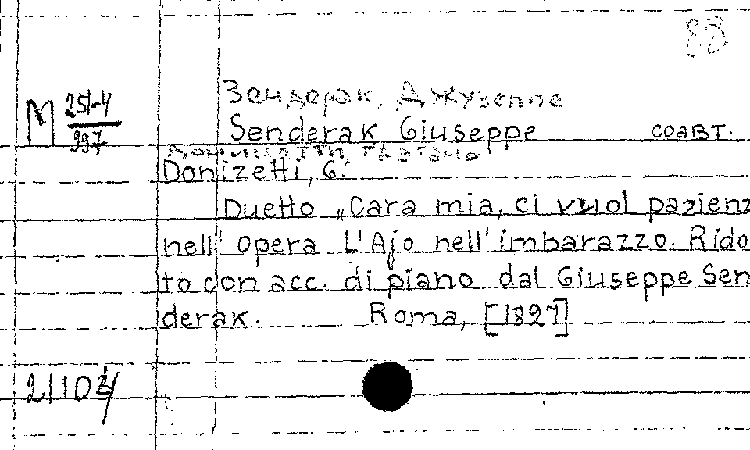 83
Зендерак, Джузеппе
M 251-4
Senderak Giuseppe соавт.
997
Доницетти, Гаетано
Donizetti, G.
Duetto „Cara mia, ci vuol pazienz
nell' opera L'Ajo nell'imbarazzo. Rido
to con acc. di piano dal Giuseppe Sen
derak. Roma, [1827]